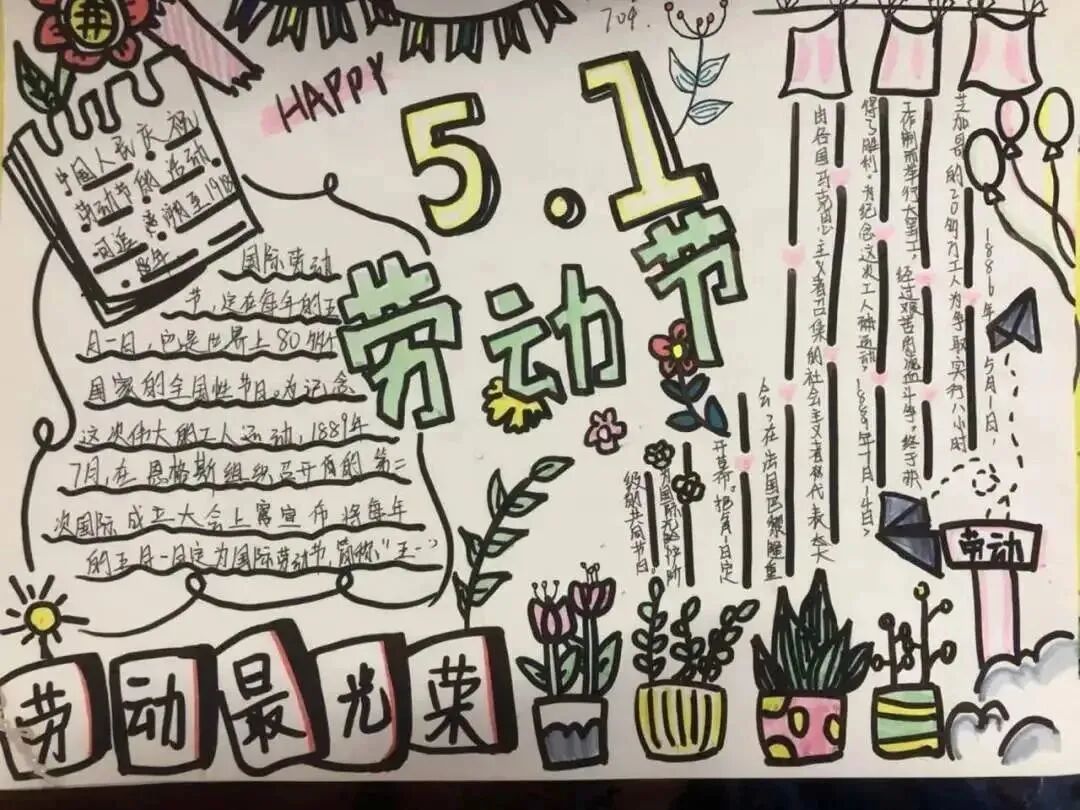 704.
HAPPY
5.1
劳动节
中国人民庆祝
劳动节的活动
可追溯至1918
年
国际劳动
节,定在每年的五
月一日,它是世界上80多个
国家的全国性节日。为纪念
这次伟大的工人运动,1889年
7月,在恩格斯组织召开的第二
次国际成立大会上宣布将每年
的五月一日定为国际劳动节,简称"五一"
1886年5月1日,
芝加哥的20多万工人为争取实行八小时
工作制而举行大罢工,经过艰苦的流血斗争,终于获
得了胜利,为纪念这次工人运动,1889年7月14日,
由各国马克思主义者召集的社会主义者代表大
会,在法国巴黎隆重
开幕。把5月1日定
为国际无产阶
级的共同节日。
劳动
劳动最光荣